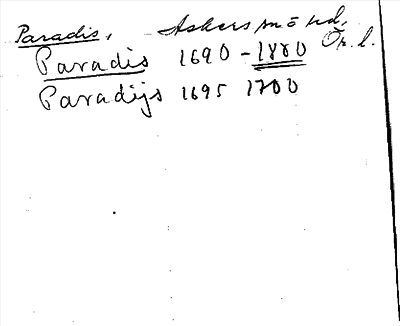 Paradis, Askers sn o hd, Ör. l.
Paradis 1690 - 1880
Paradijs 1695 1700